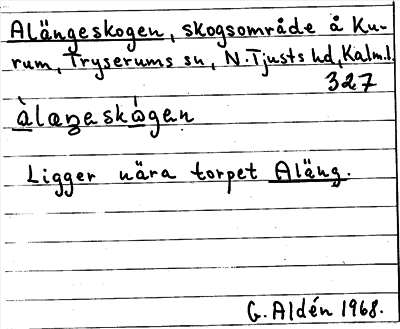 Alängeskogen, skogsområde å Ku-
rum, Tryserums sn, N. Tjusts hd, Kalm.l.
327
àlaŋeskógen
Ligger nära torpet Aläng.
G. Aldén 1968.